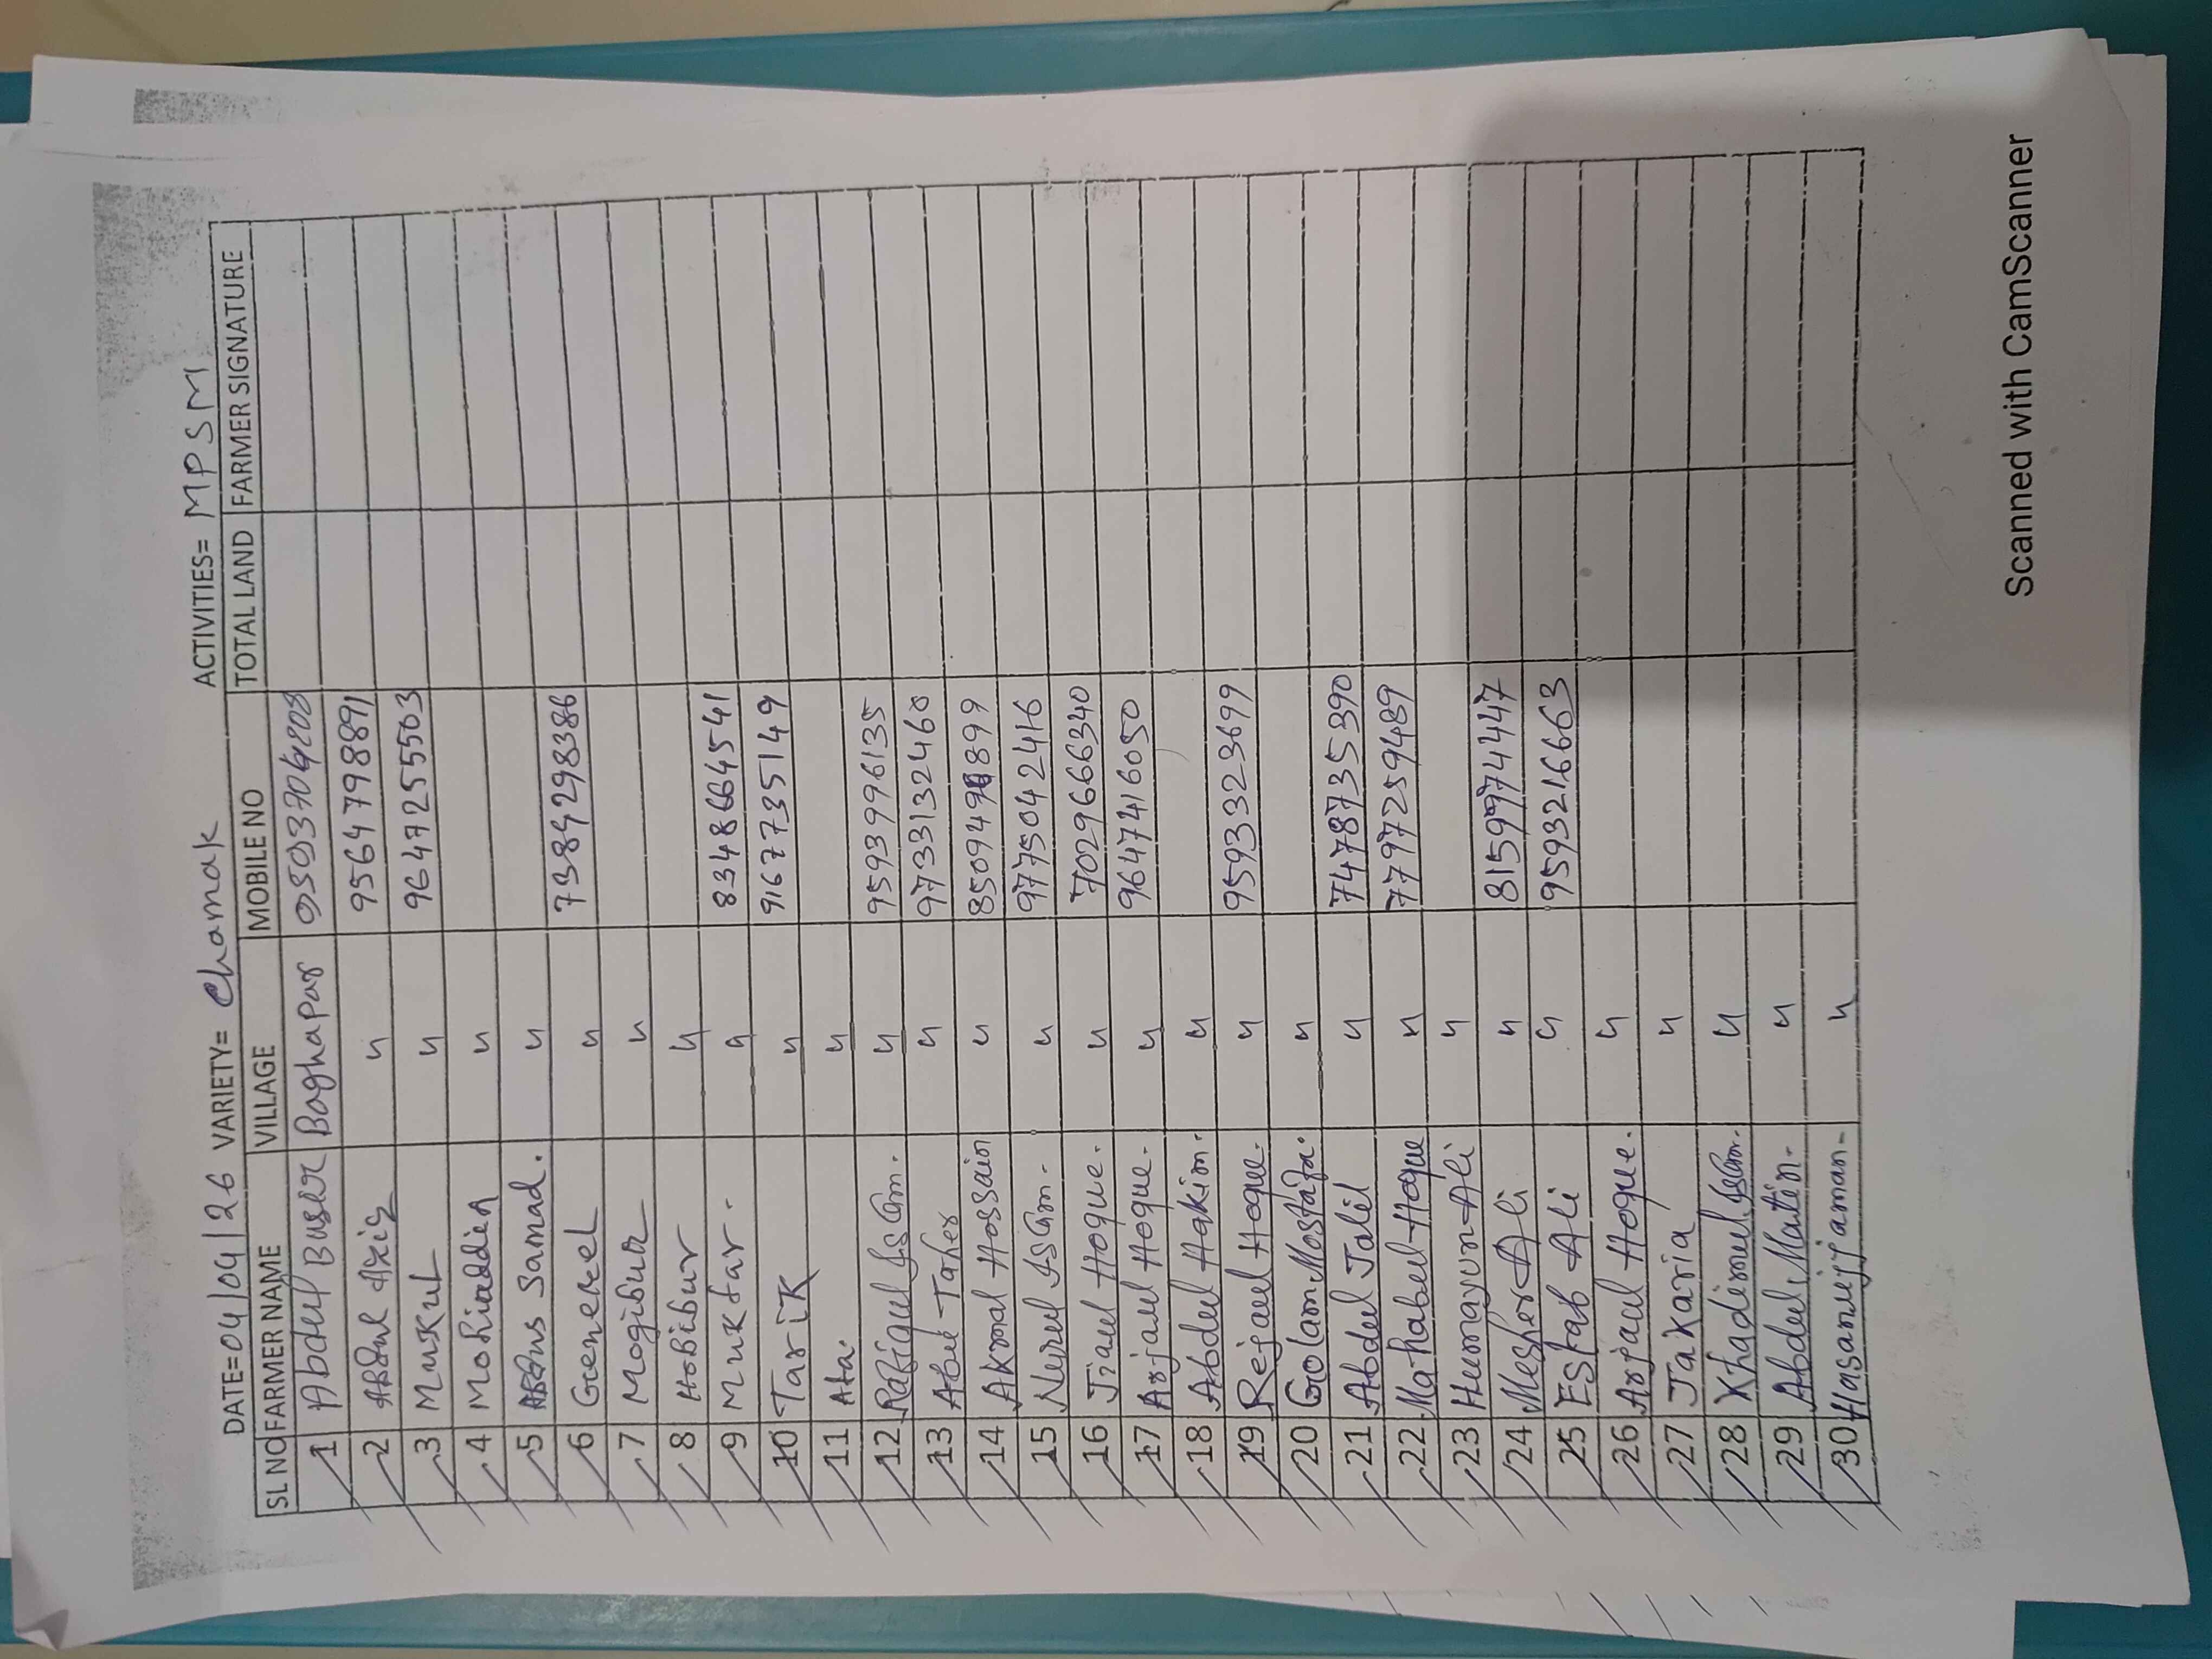 DATE=04/04/26 VARIETY= Chamak ACTIVITIES= MPSM
SL NO FARMER NAME VILLAGE MOBILE NO TOTAL LAND FARMER SIGNATURE
1 Abdul Buser Baghapar
2 Abdul Aziz " 9564798891
3 Mukul " 9647255503
4 Mohiaddin "
5 Abdus Samad. "
6 Genekel " 7389298386
7 Mogibur "
8 Hobibur "
9 Muktar. " 8348664541
10 Tarik " 9167735149
11 Ata. "
12 Rafiqul Islam. " 9593996135
13 Abu Taher " 9733132460
14 Akmal Hossain "
15 Nurul Islam. " 9775042416
16 Jiaul Hoque. " 7029666340
17 Arjaul Hoque. " 9647416050
18 Abdul Hakim. "
19 Rejaul Hoque. " 9593323699
20 Golam Mostafa. "
21 Abdul Jalil " 7478735390
22 Mahabul Hoque " 7797259489
23 Humayun Ali "
24 Mesher Ali " 8159974447
25 Estab Ali " 9593216663
26 Arjaul Hoque. "
27 Jakaria "
28 Khadimul Islam. "
29 Abdul Matin. "
30 Hasanujjaman. "
Scanned with CamScanner